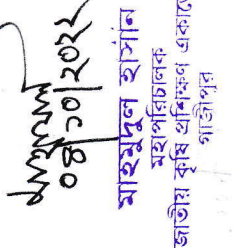 ০৪/১০/২০২২
মাহমুদুল হাসান
মহাপরিচালক
জাতীয় কৃষি প্রশিক্ষণ একাডে
গাজীপুর